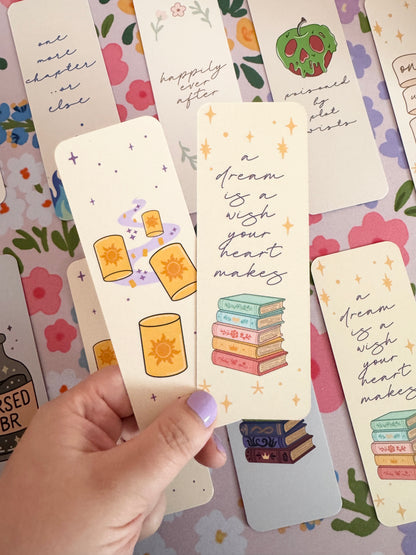 one
more
chapter
..or
else
happily
ever
after
poisoned
by
plot
twists
a
dream
is a
wish
your
heart
makes
a
dream
is a
wish
your
heart
makes